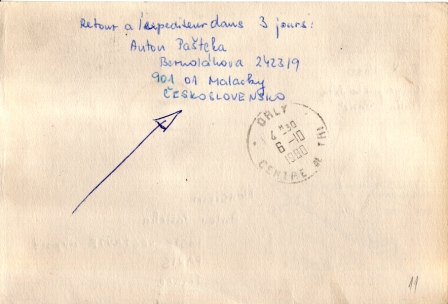 Retour a l'expediteur dans 3 jours:
Anton Paštcka
Bernolákova 2423/9
901 01 Malacky
ČESKOSLOVENSKO
ORLY
4 H30
6-10
1980
CENTRE
11